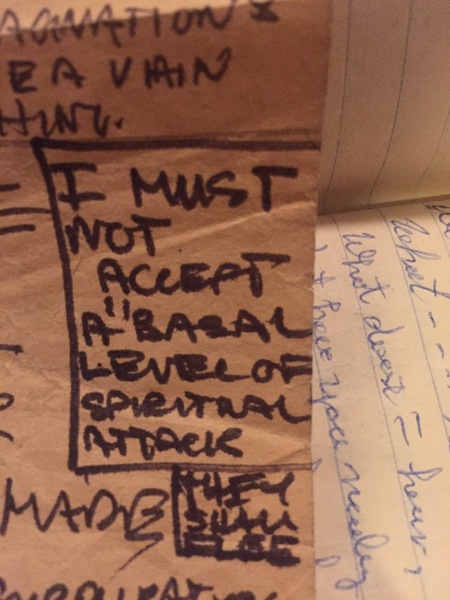 AGINATIONS
E A VAIN
THING.
I MUST
NOT
ACCEPT
A "BASAL
LEVEL OF
SPIRITUAL
ATTACK
MADE
THEY
SHALL
FLEE
What - -
What does = hear,
have you really